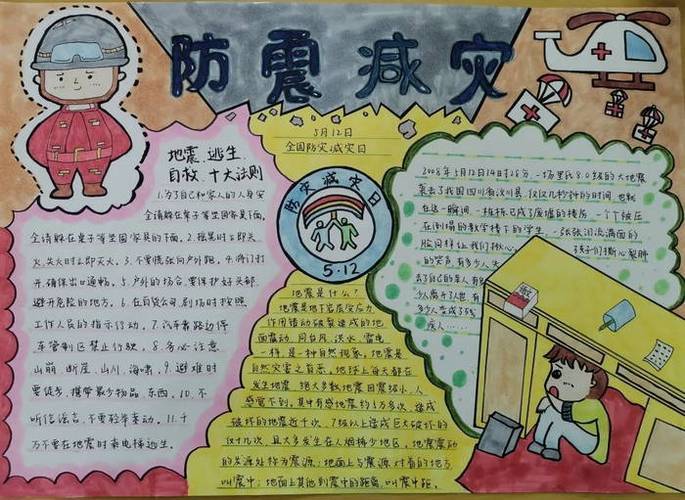 防震减灾
地震逃生
自救十大法则
1.为了自己和家人的人身安
全请躲在桌子等坚固家具下面,
全请躲在桌子等坚固家具的下面。2.摇晃时立即关
火,失火时立即灭火。3.不要慌张向户外跑。4.将门打
开,确保出口通畅。5.户外的场合,要保护好头部
避开危险的地方。6.在百货公司,剧场时按照
工作人员的指示行动。7.汽车靠路边停
车管制区禁止行驶。8.务必注意
山崩 断崖、山川、海啸。9.避难时
要徒步,携带最少物品、东西。10.不
听信谣言,不要轻举妄动。11.千
万不要在地震时乘电梯逃生。
5月12日
全国防灾减灾日
防灾减灾日
5·12
地震是什么?
地震是地下岩石受应力
作用错动破裂造成的地
面震动。同台风、洪水、雷电
一样,是一种自然现象。地震是
自然灾害之首恶。地球上每天都在
发生地震,绝大多数地震因震级小,人
感觉不到。其中有感地震约5万多次,造成
破坏的地震近千次。7级以上造成巨大破坏的
仅十几次,且大多发生在人烟稀少地区。地震震动
的发源处称为震源;地面上与震源对着的地方
叫震中;地面上其他到震中的距离,叫震中距。
2008年5月12日14时28分,一场里氏8.0级的大地震
袭击了我国四川省汶川县,仅仅几秒钟的时间,也就
在这一瞬间,一栋栋已成了废墟的楼房,一个个被压
在倒塌的教学楼下的学生,一张张泪流满面的
脸同样让我们揪心。孩子们撕心裂肺
的哭喊,有多少人失
去了自己的亲人,有多
少人离开了人世,有
多少人变成了残
疾人……